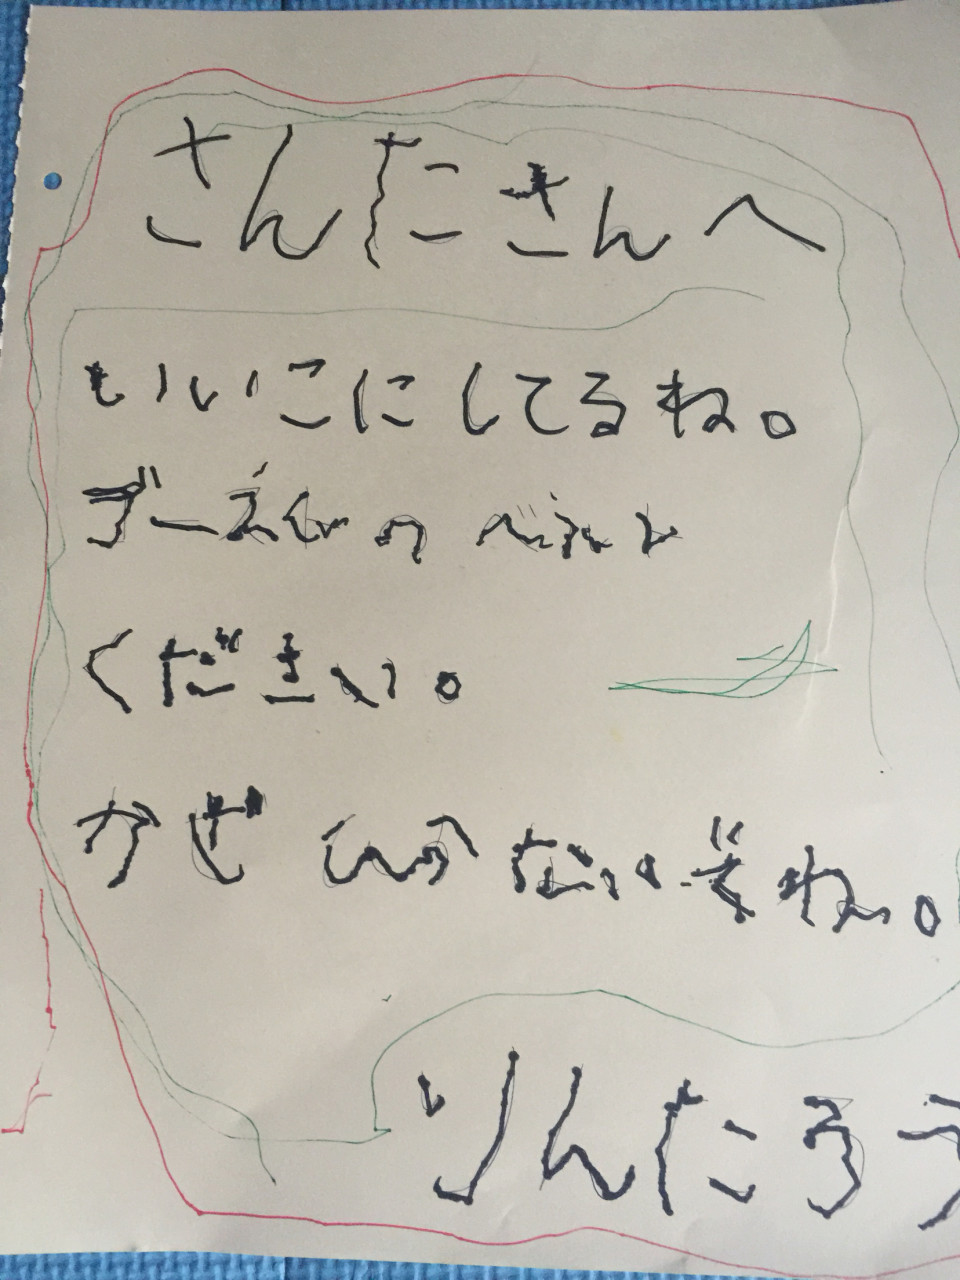 さんたさんへ
いいこにしてるね。
ゴーズぐの べると
ください。
かぜ ひかないでね。
りんたろう